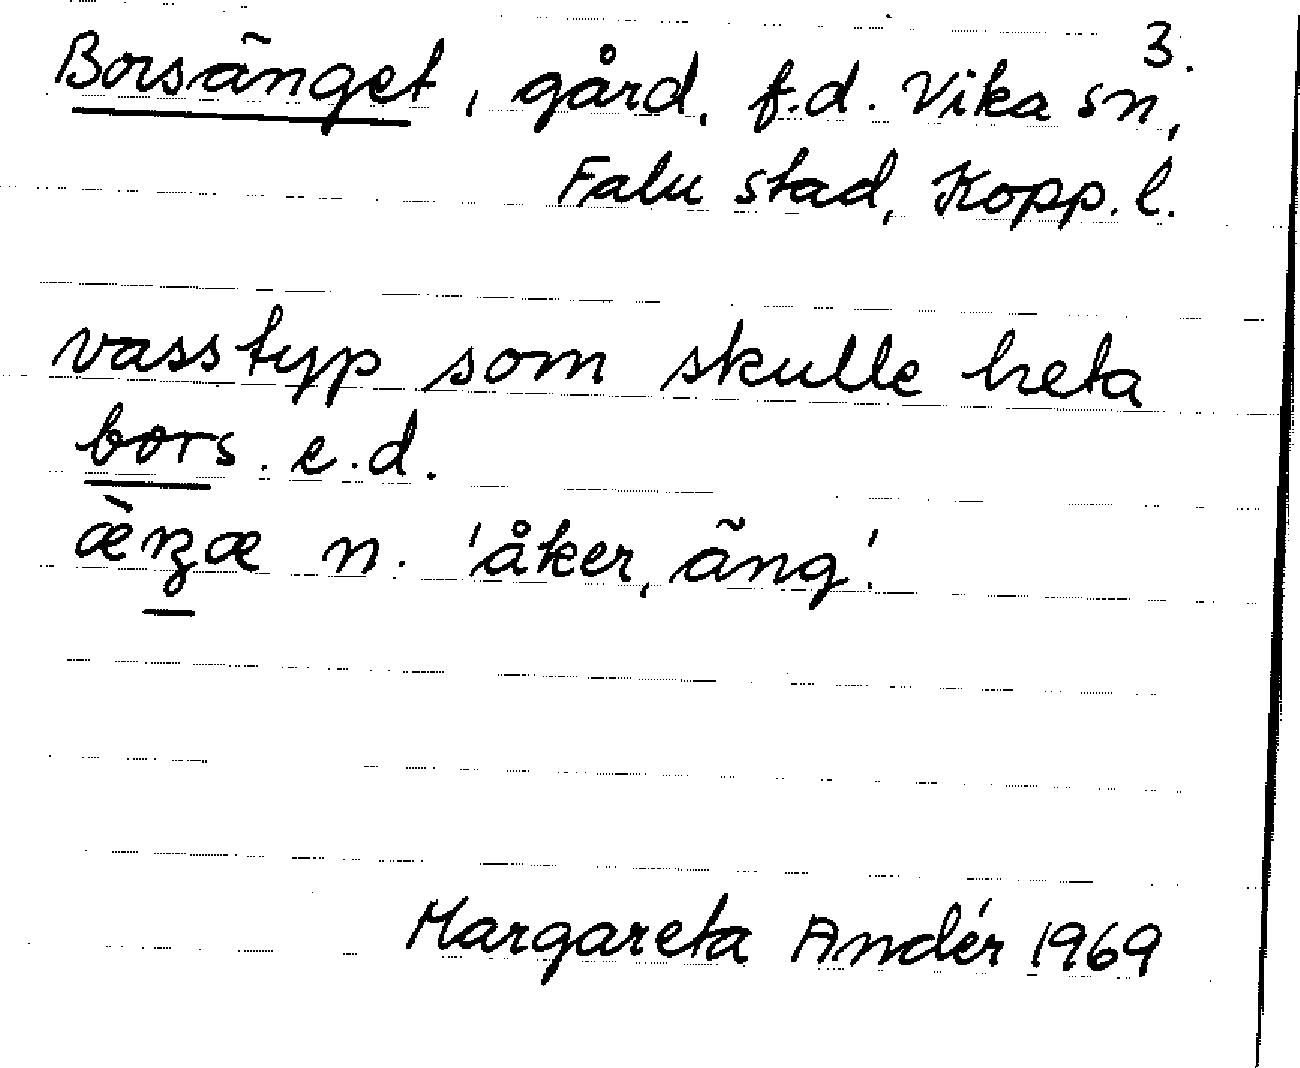 3.
Borsänget, gård, f.d. Vika sn,
Falu stad, Kopp. l.
vasstyp som skulle heta
bors. e.d.
æ̀nʒæ n. 'åker, äng'.
Margareta Andér 1969